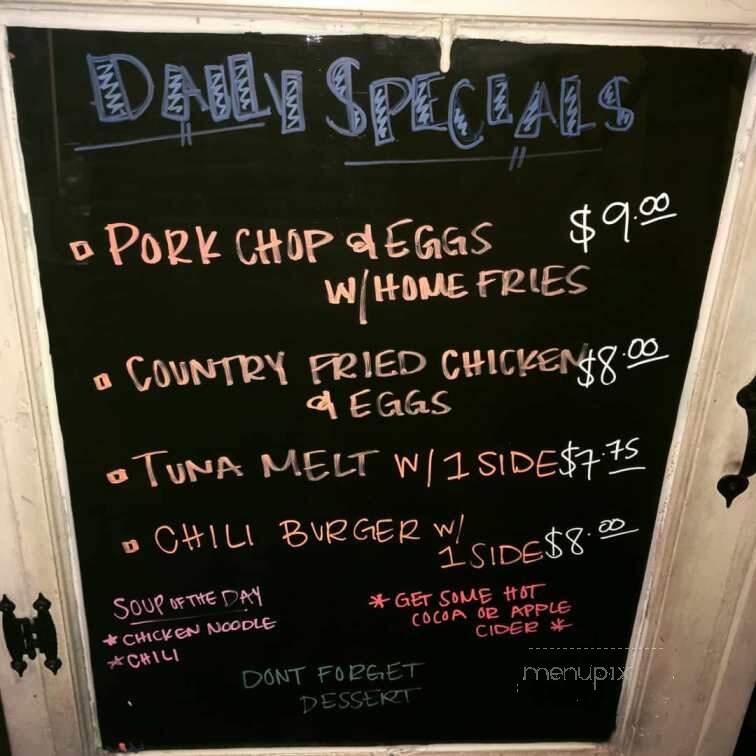 DAILY SPECIALS
PORK CHOP & EGGS $9.00
W/HOME FRIES
COUNTRY FRIED CHICKEN $8.00
& EGGS
TUNA MELT W/ 1 SIDE $7.75
CHILI BURGER W/
1 SIDE $8.00
SOUP OF THE DAY
* CHICKEN NOODLE
* CHILI
* GET SOME HOT
COCOA OR APPLE
CIDER *
DONT FORGET
DESSERT
menupix